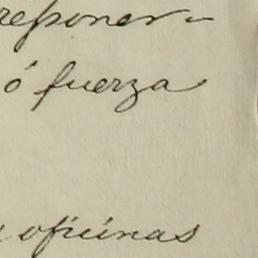 reponer-
ó fuerza
oficinas